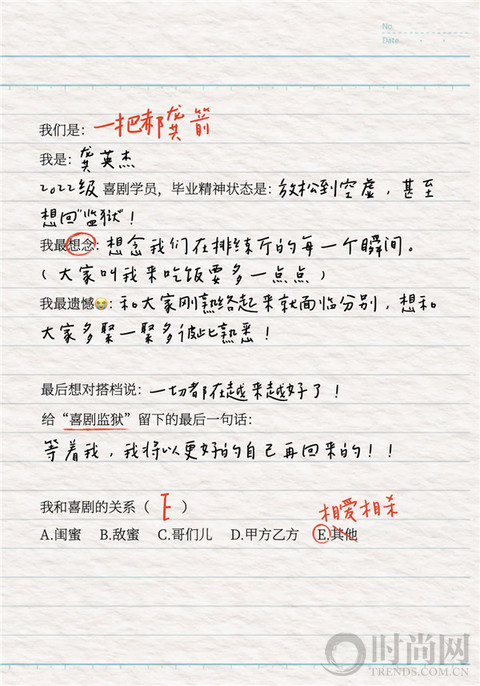 No.
Date
我们是：一把郝龚箭
我是：龚英杰
2022级 喜剧学员，毕业精神状态是：放松到空虚，甚至
想回"监狱"！
我最想念：想念我们在排练厅的每一个瞬间。
（大家叫我来吃饭要多一点点）
我最遗憾😭：和大家刚熟络起来就面临分别，想和
大家多聚一聚多彼此熟悉！
最后想对搭档说：一切都在越来越好了！
给“喜剧监狱”留下的最后一句话：
等着我，我将以更好的自己再回来的！！
我和喜剧的关系（ E ）
相爱相杀
A.闺蜜 B.敌蜜 C.哥们儿 D.甲方乙方 E.其他
时尚网
TRENDS.COM.CN